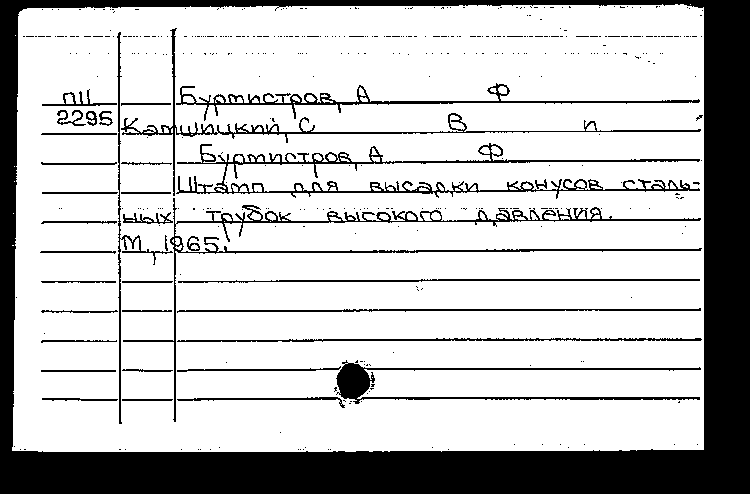 П11 Бурмистров, А Ф
2295 Катшицкий, С В и
Бурмистров, А Ф
Штамп для высадки конусов сталь-
ных трубок высокого давления.
М., 1965.